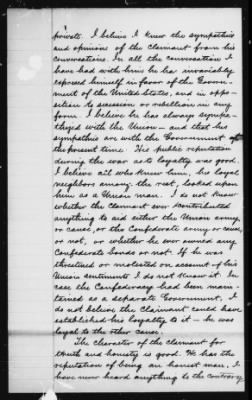 private. I believe I knew the sympathies
and opinions of the claimant from his
conversations. In all the conversation I
have had with him he has invariably
expressed himself in favor of the Govern-
ment of the United States, and in oppo-
sition to secession or rebellion in any
form. I believe he has always sympa-
thized with the Union - and that his
sympathies are with the Government at
the present time. His public reputation
during the war as to loyalty was good.
I believe all who knew him, his loyal
neighbors among the rest, looked upon
him as a Union man. I do not know
whether the claimant ever contributed
anything to aid either the Union army
or cause, or the Confederate army or cause,
or not, or whether he ever owned any
Confederate bonds or not. If he was
threatened or molested on account of his
Union sentiments I do not know it. In
case the Confederacy had been main-
tained as a separate Government, I
do not believe the claimant could have
established his loyalty to it - he was
loyal to the other cause.
The character of the claimant for
truth and honesty is good. He has the
reputation of being an honest man, I
have never heard anything to the contrary